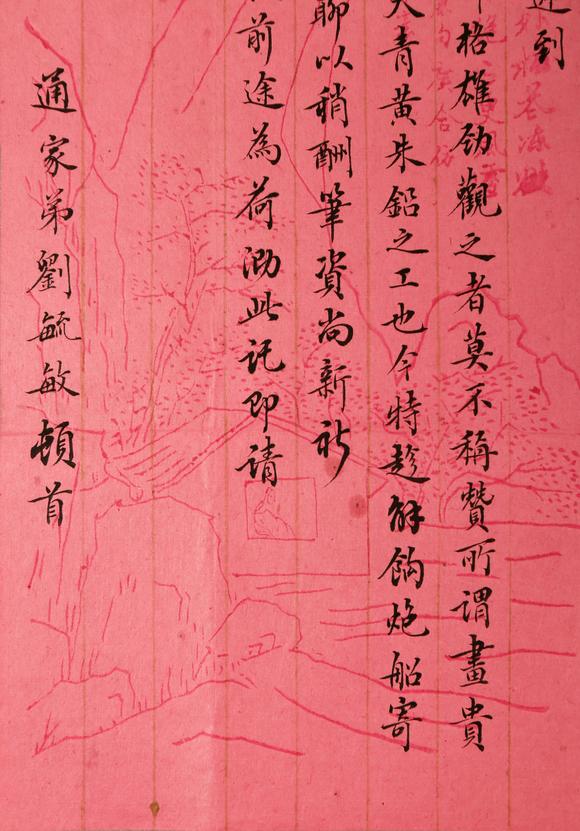 到
格雄劲觀之者莫不稱贊所謂畫貴
青黃朱鉛之工也今特趁解餉炮船寄
聊以稍酬筆資尚新祈
前途為荷泐此託即請
通家弟劉毓敏頓首